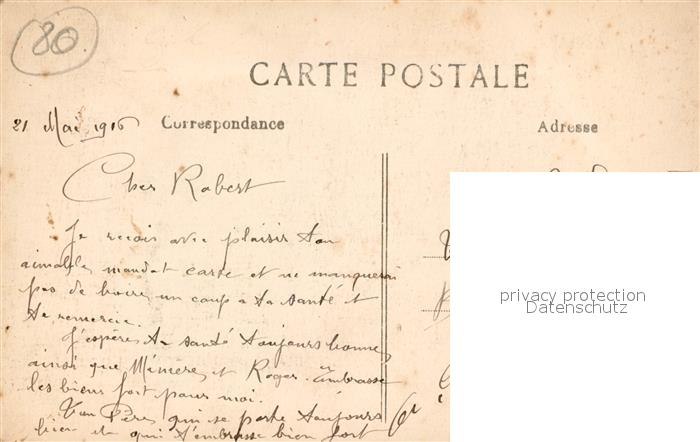 80
CARTE POSTALE
21 Mai 1916
Correspondance
Adresse
Cher Robert
Je reçois avec plaisir ton
aimable mandat carte et ne manquerai
pas de boire un coup a ta santé et
te remercie.
J'espère ta santé toujours bonne,
ainsi que Mémère et Roger. Embrasse
les bien fort pour moi.
Ton Père qui se porte toujours
bien et qui t'embrasse bien fort
privacy protection
Datenschutz